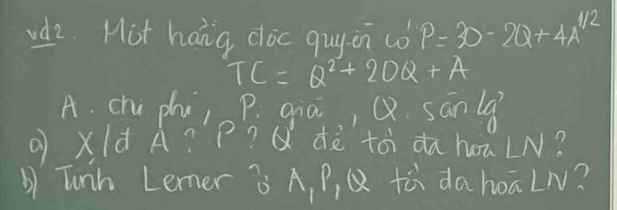 vd2. Một hãng độc quyền có P = 30 - 2Q + 4A^1/2
TC = Q² + 20Q + A
A. chi phí, P. giá, Q. sản lg
a) X/đ A? P? Q để tối đa hoá LN?
b) Tính Lerner ở A, P, Q tối đa hoá LN?